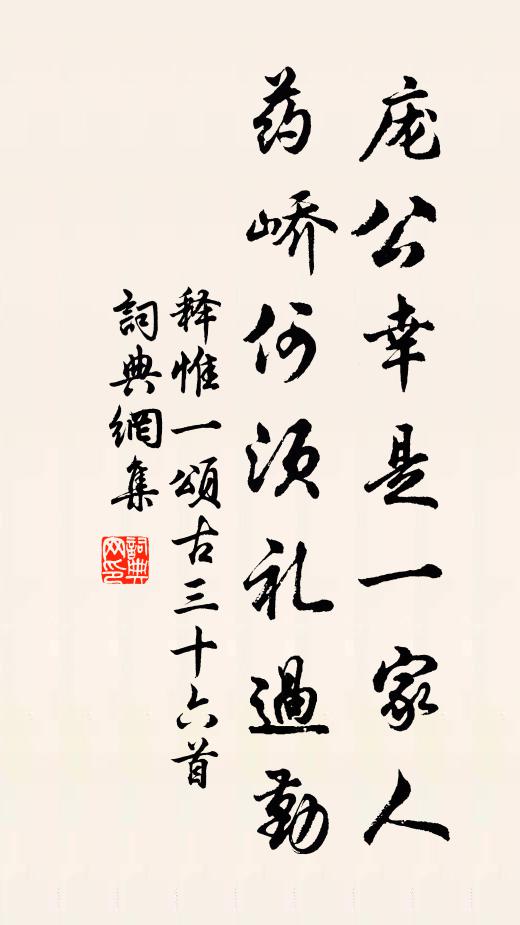 庞公幸是一家人
药峤何须礼過勤
释惟一頌古三十六首
詞典網集
詞典网印